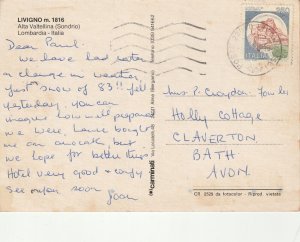 LIVIGNO m. 1816
Alta Valtellina (Sondrio)
Lombardia - Italia
ITALIA
Dear Pam:
we have had
a change in weather,
just snow of 83!! fell
yesterday, you can
imagine how ill prepared
we were, have bought
an anorak, but
we hope for better things
Hotel very good & comfy
See you soon
Joan
Mrs P. Croydon-Fowler
Holly Cottage
CLAVERTON
BATH
AVON.
CR 2525 da fotocolor - Riprod. vietata